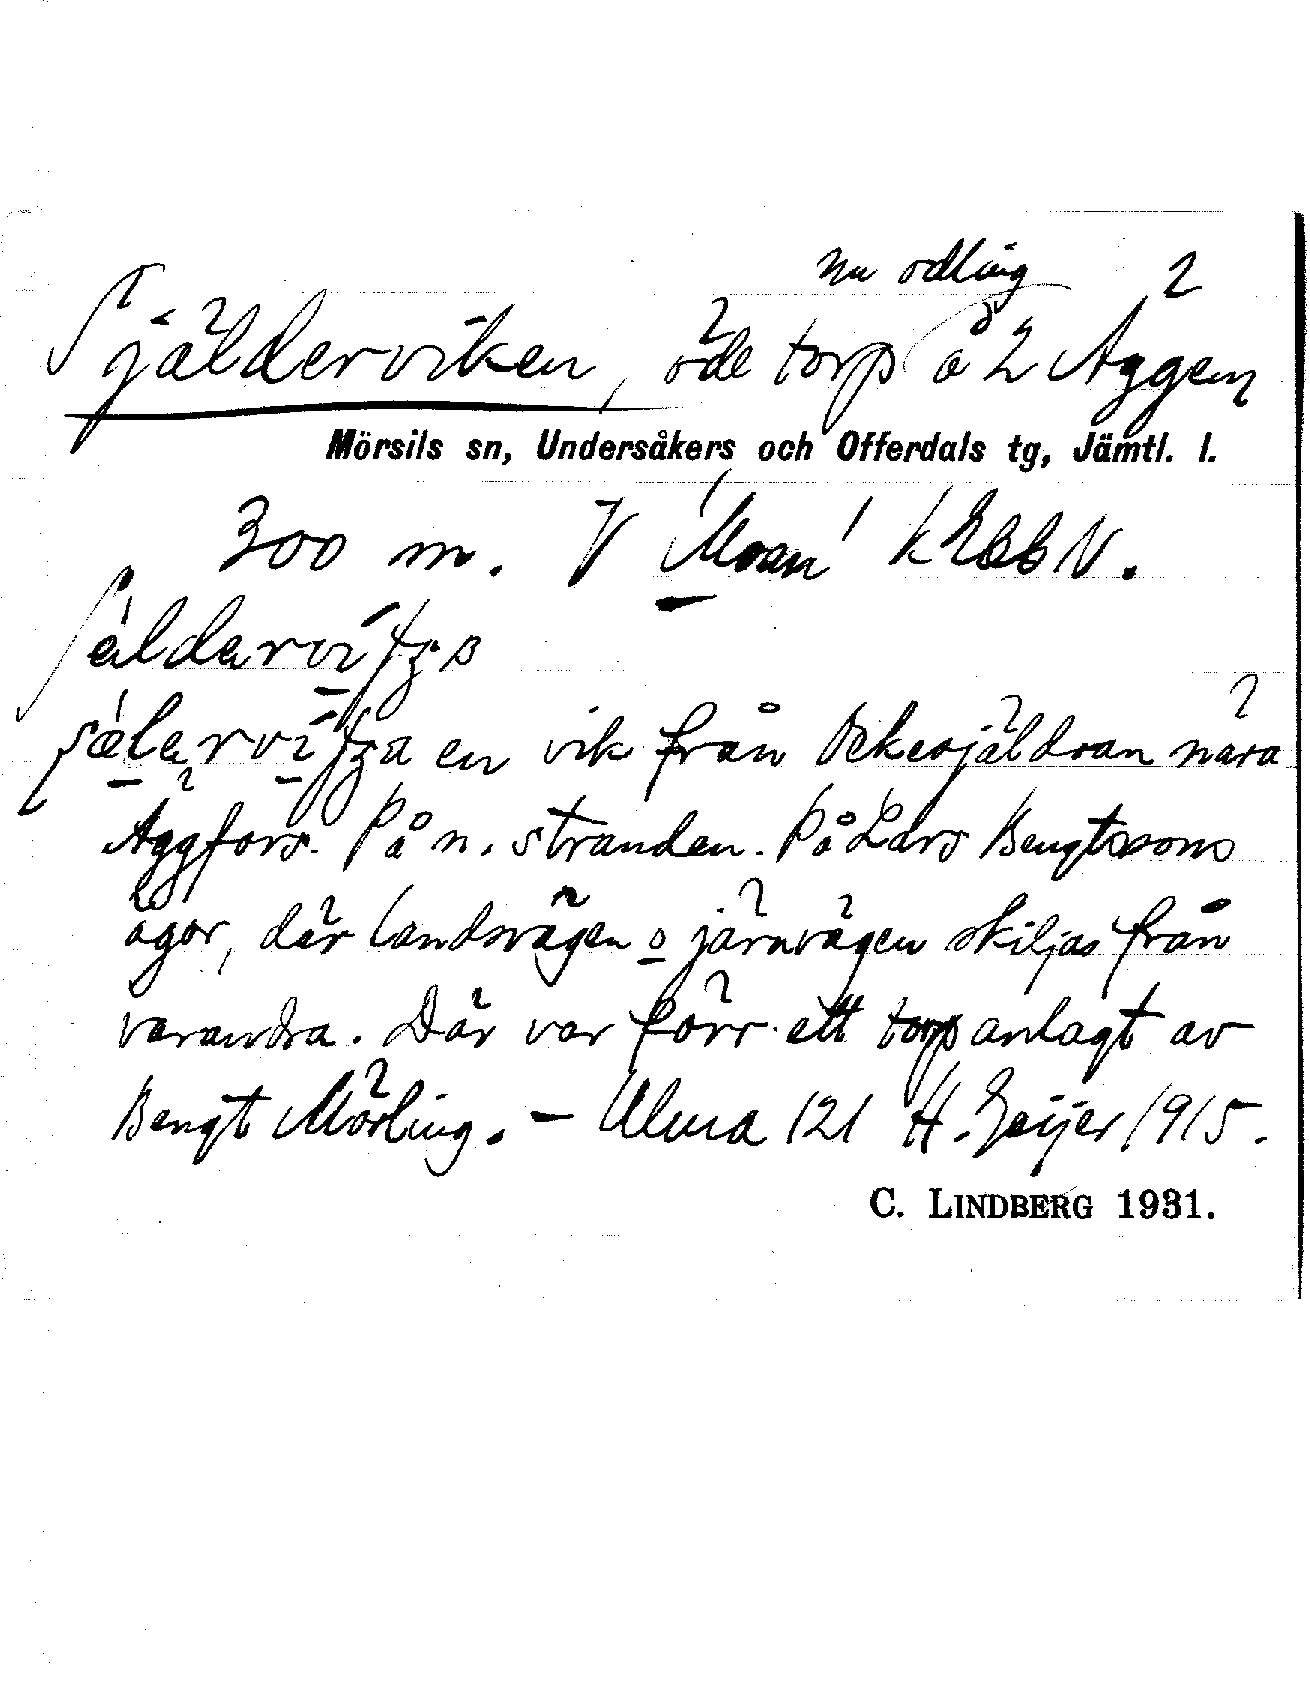 nu odling 2
Själderviken, öde torp å 2 Aggen
Mörsils sn, Undersåkers och Offerdals tg, Jämtl. l.
300 m. V Moan k Ebb N.
en vik från Ockesjäldran nära
Aggfors. På n. stranden. På Lars Bengtssons
ägor, där landsvägen o järnvägen skiljas från
varandra. Där var förr ett torp anlagt av
Bengt Mörling. – Ulma 121 H. Geijer 1915.
C. LINDBERG 1931.